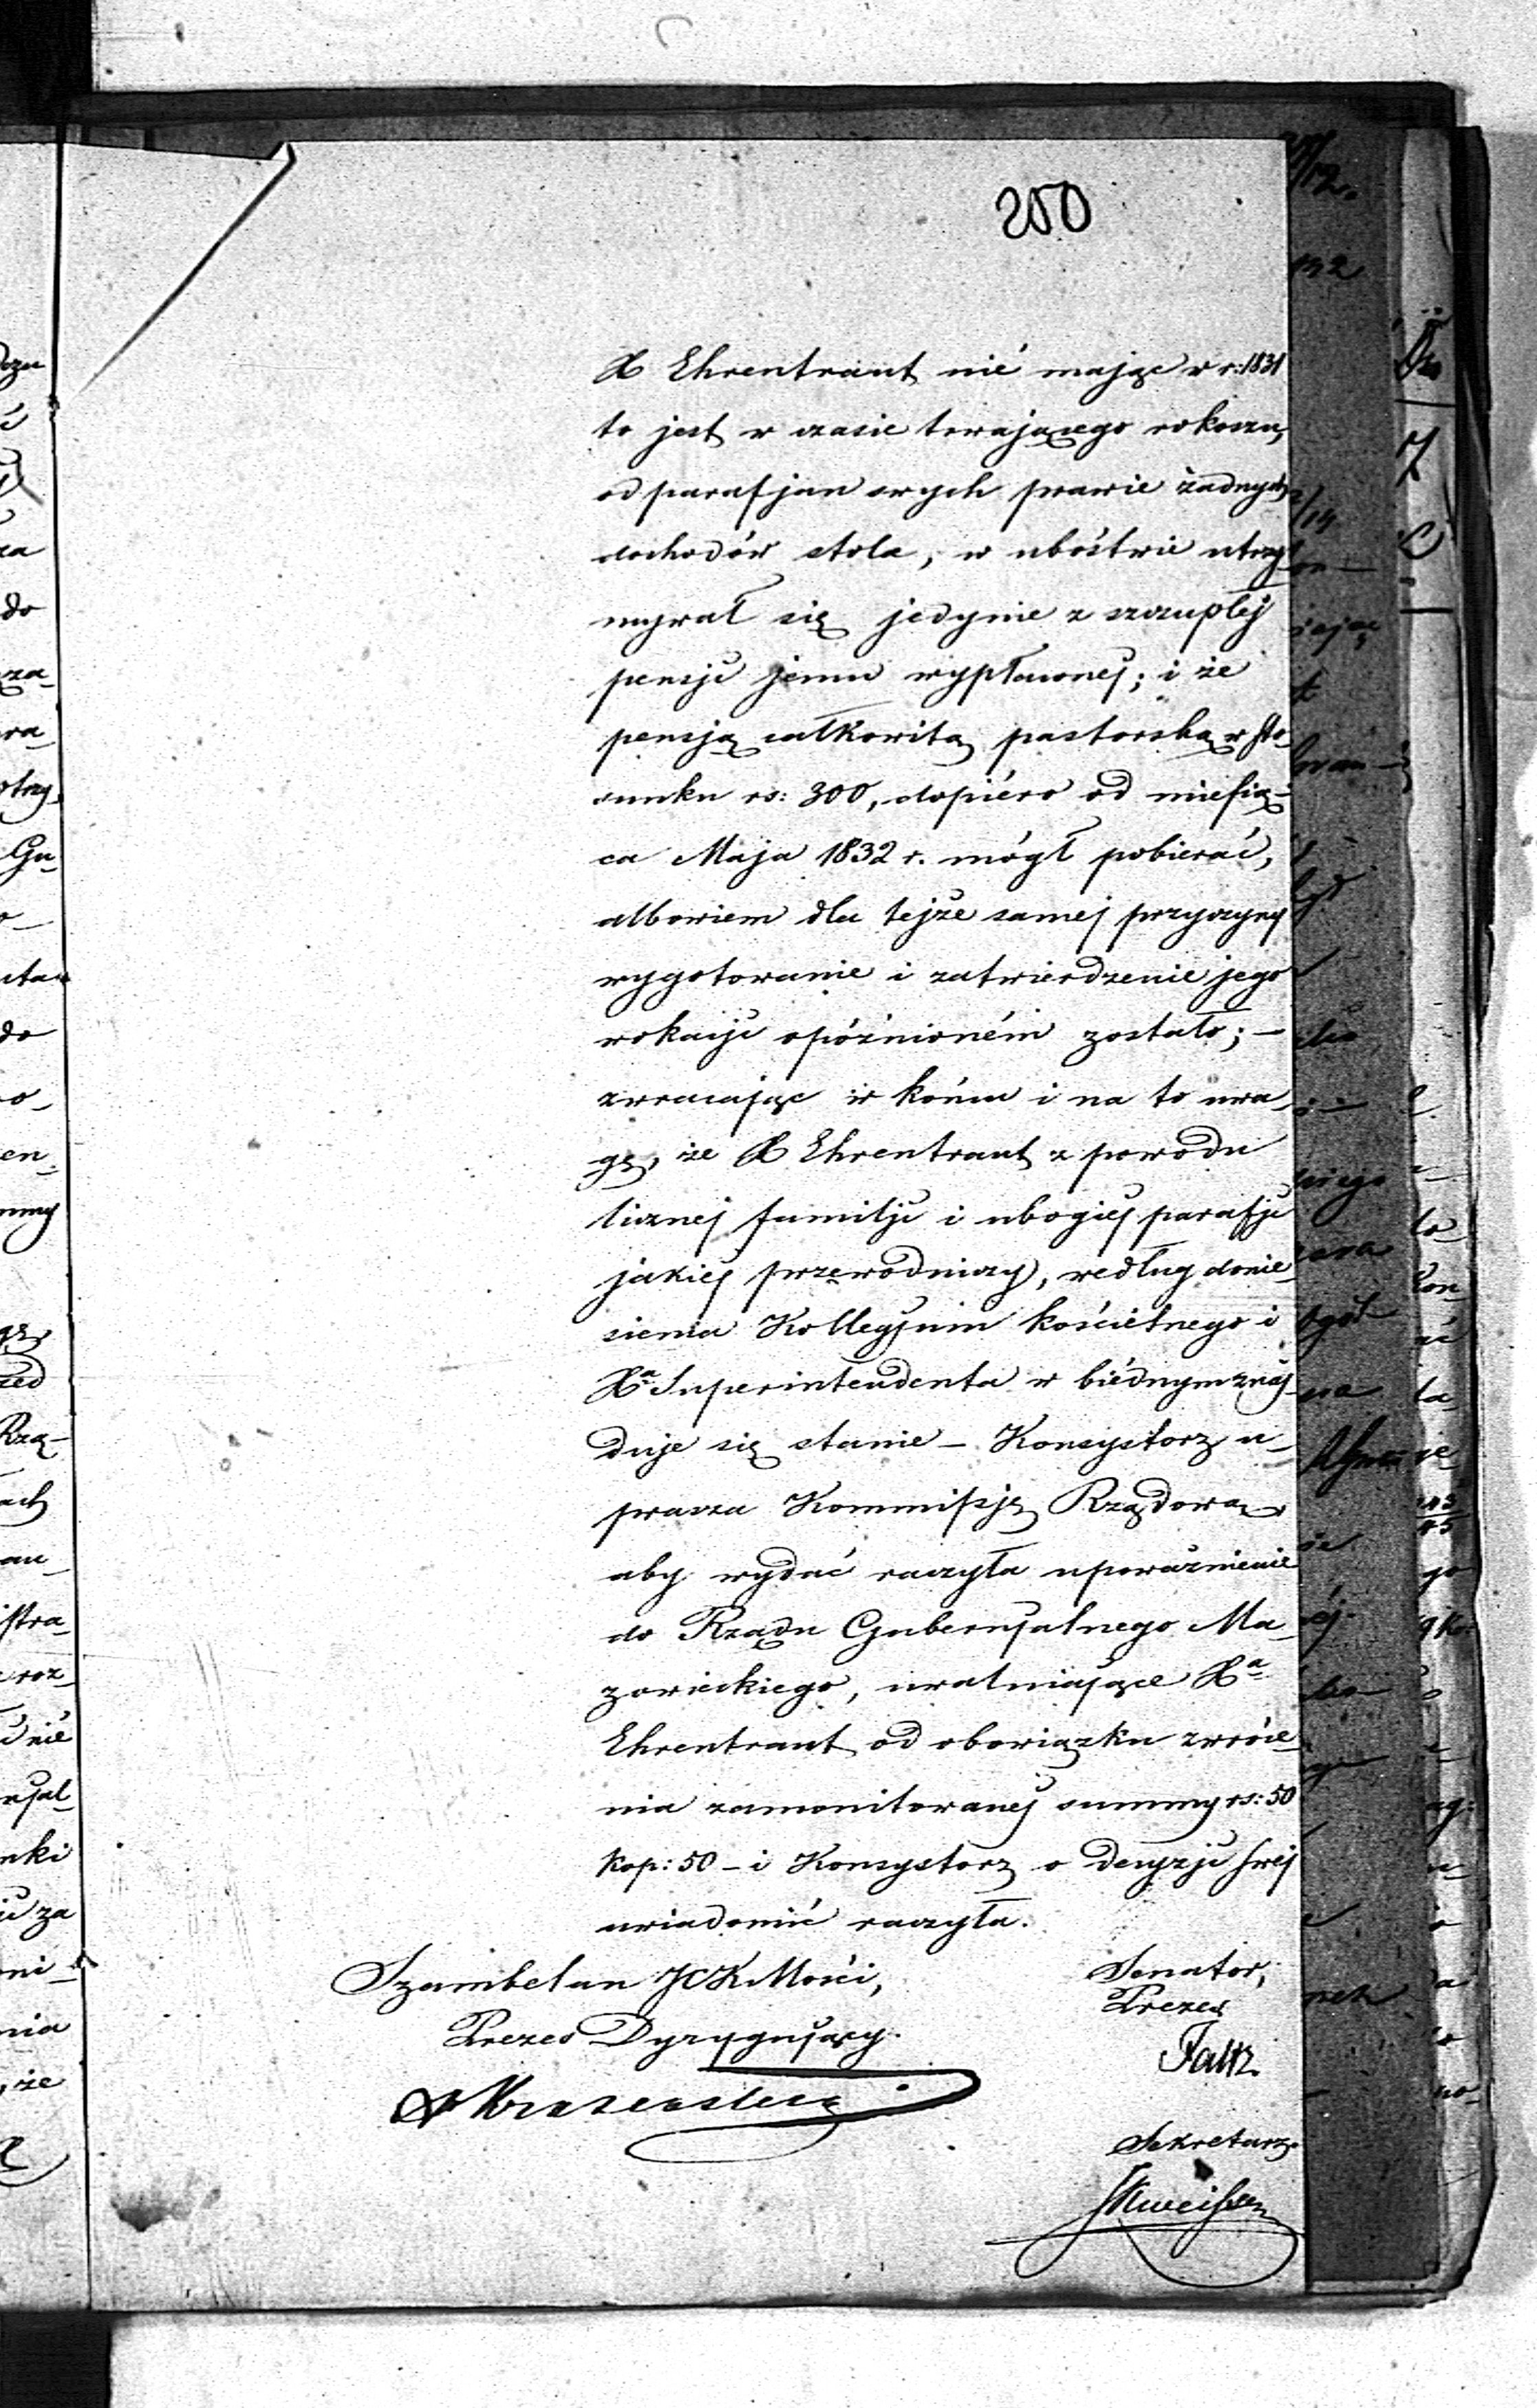 250
X Ehrentraut nié mając w r: 1831
to jest w czasie trwającego rokoszu,
od parafjan swych prawie żadnych
dochodów stola, w ubóstwie utrzy
mywał się jedynie z szczupłéj
pensji jemu wypłaconéj; i że
pensją całkowitą pastorską w sto
sunku rs: 300, dopiéro od miesią-
ca Maja 1832 r. mógł pobierać,
albowiem dla tejże saméj przyczyny
wygotowanie i zatwierdzenie jego
wokacji opóźnioném zostało; —
zwracając w końcu i na to uwa
gę, że X Ehrentraut z powodu
licznéj familji i ubogiéj parafji
jakiéj przewodniczy, według donie
sienia Kollegjum kościelnego i
Xa Superintendenta w biédnym znaj
duje się stanie — Konsystorz u-
prasza Kommissję Rządową,
aby wydać raczyła upoważnienie
do Rządu Gubernjalnego Ma-
zowieckiego, uwalniające Xa
Ehrentraut od obowiązku zwróce-
nia zamonitowanéj summy rs: 50
kop: 50 — i Konsystorz o decyzji swéj
uwiadomić raczyła.
Szambelan JCKMości,
Prezes Dyrygujący.
Senator,
Prezes
Sekretarz